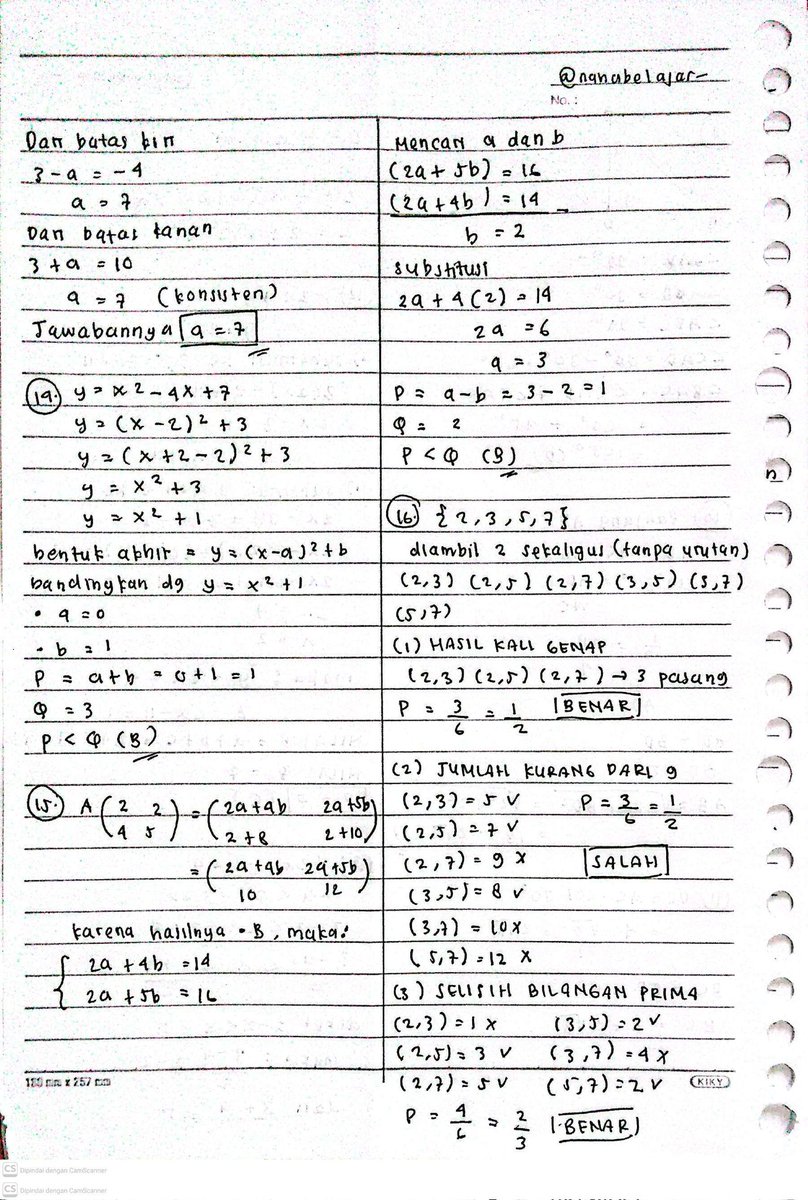 @nanabelajar
No. :
Dari batas kiri
3 - a = -4
a = 7
Dari batas kanan
3 + a = 10
a = 7 (konsisten)
Jawabannya a = 7
14. y = x2 - 4x + 7
y = (x - 2)² + 3
y = (x + 2 - 2)² + 3
y = x² + 3
y = x² + 1
bentuk akhir = y = (x-a)² + b
bandingkan dg y = x² + 1
• a = 0
• b = 1
P = a+b = 0+1 = 1
Q = 3
P < Q (B)
15. A (2 2
4 5) = (2a+4b 2a+5b
2+8 2+10)
= (2a+4b 2a+5b
10 12)
karena hasilnya = B, maka:
{ 2a + 4b = 14
2a + 5b = 16
Mencari a dan b
(2a + 5b) = 16
(2a + 4b) = 14 -
b = 2
substitusi
2a + 4(2) = 14
2a = 6
a = 3
P = a-b = 3-2 = 1
Q = 2
P < Q (B)
16. {2,3,5,7}
diambil 2 sekaligus (tanpa urutan)
(2,3) (2,5) (2,7) (3,5) (3,7)
(5,7)
(1) HASIL KALI GENAP
(2,3) (2,5) (2,7) → 3 pasang
P = 3/6 = 1/2 BENAR
(2) JUMLAH KURANG DARI 9
(2,3) = 5 v P = 3/6 = 1/2
(2,5) = 7 v
(2,7) = 9 x SALAH
(3,5) = 8 v
(3,7) = 10 x
(5,7) = 12 x
(3) SELISIH BILANGAN PRIMA
(2,3) = 1 x (3,5) = 2 v
(2,5) = 3 v (3,7) = 4 x
(2,7) = 5 v (5,7) = 2 v
P = 4/6 = 2/3 BENAR
180 mm x 257 mm
KIKY
CS Dipindai dengan CamScanner
CS Dipindai dengan CamScanner